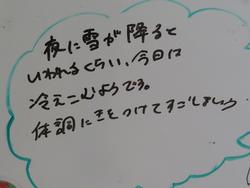 夜に雪が降ると
いわれるくらい、今日は
冷えこむようです。
体調にきをつけてすごしましょう